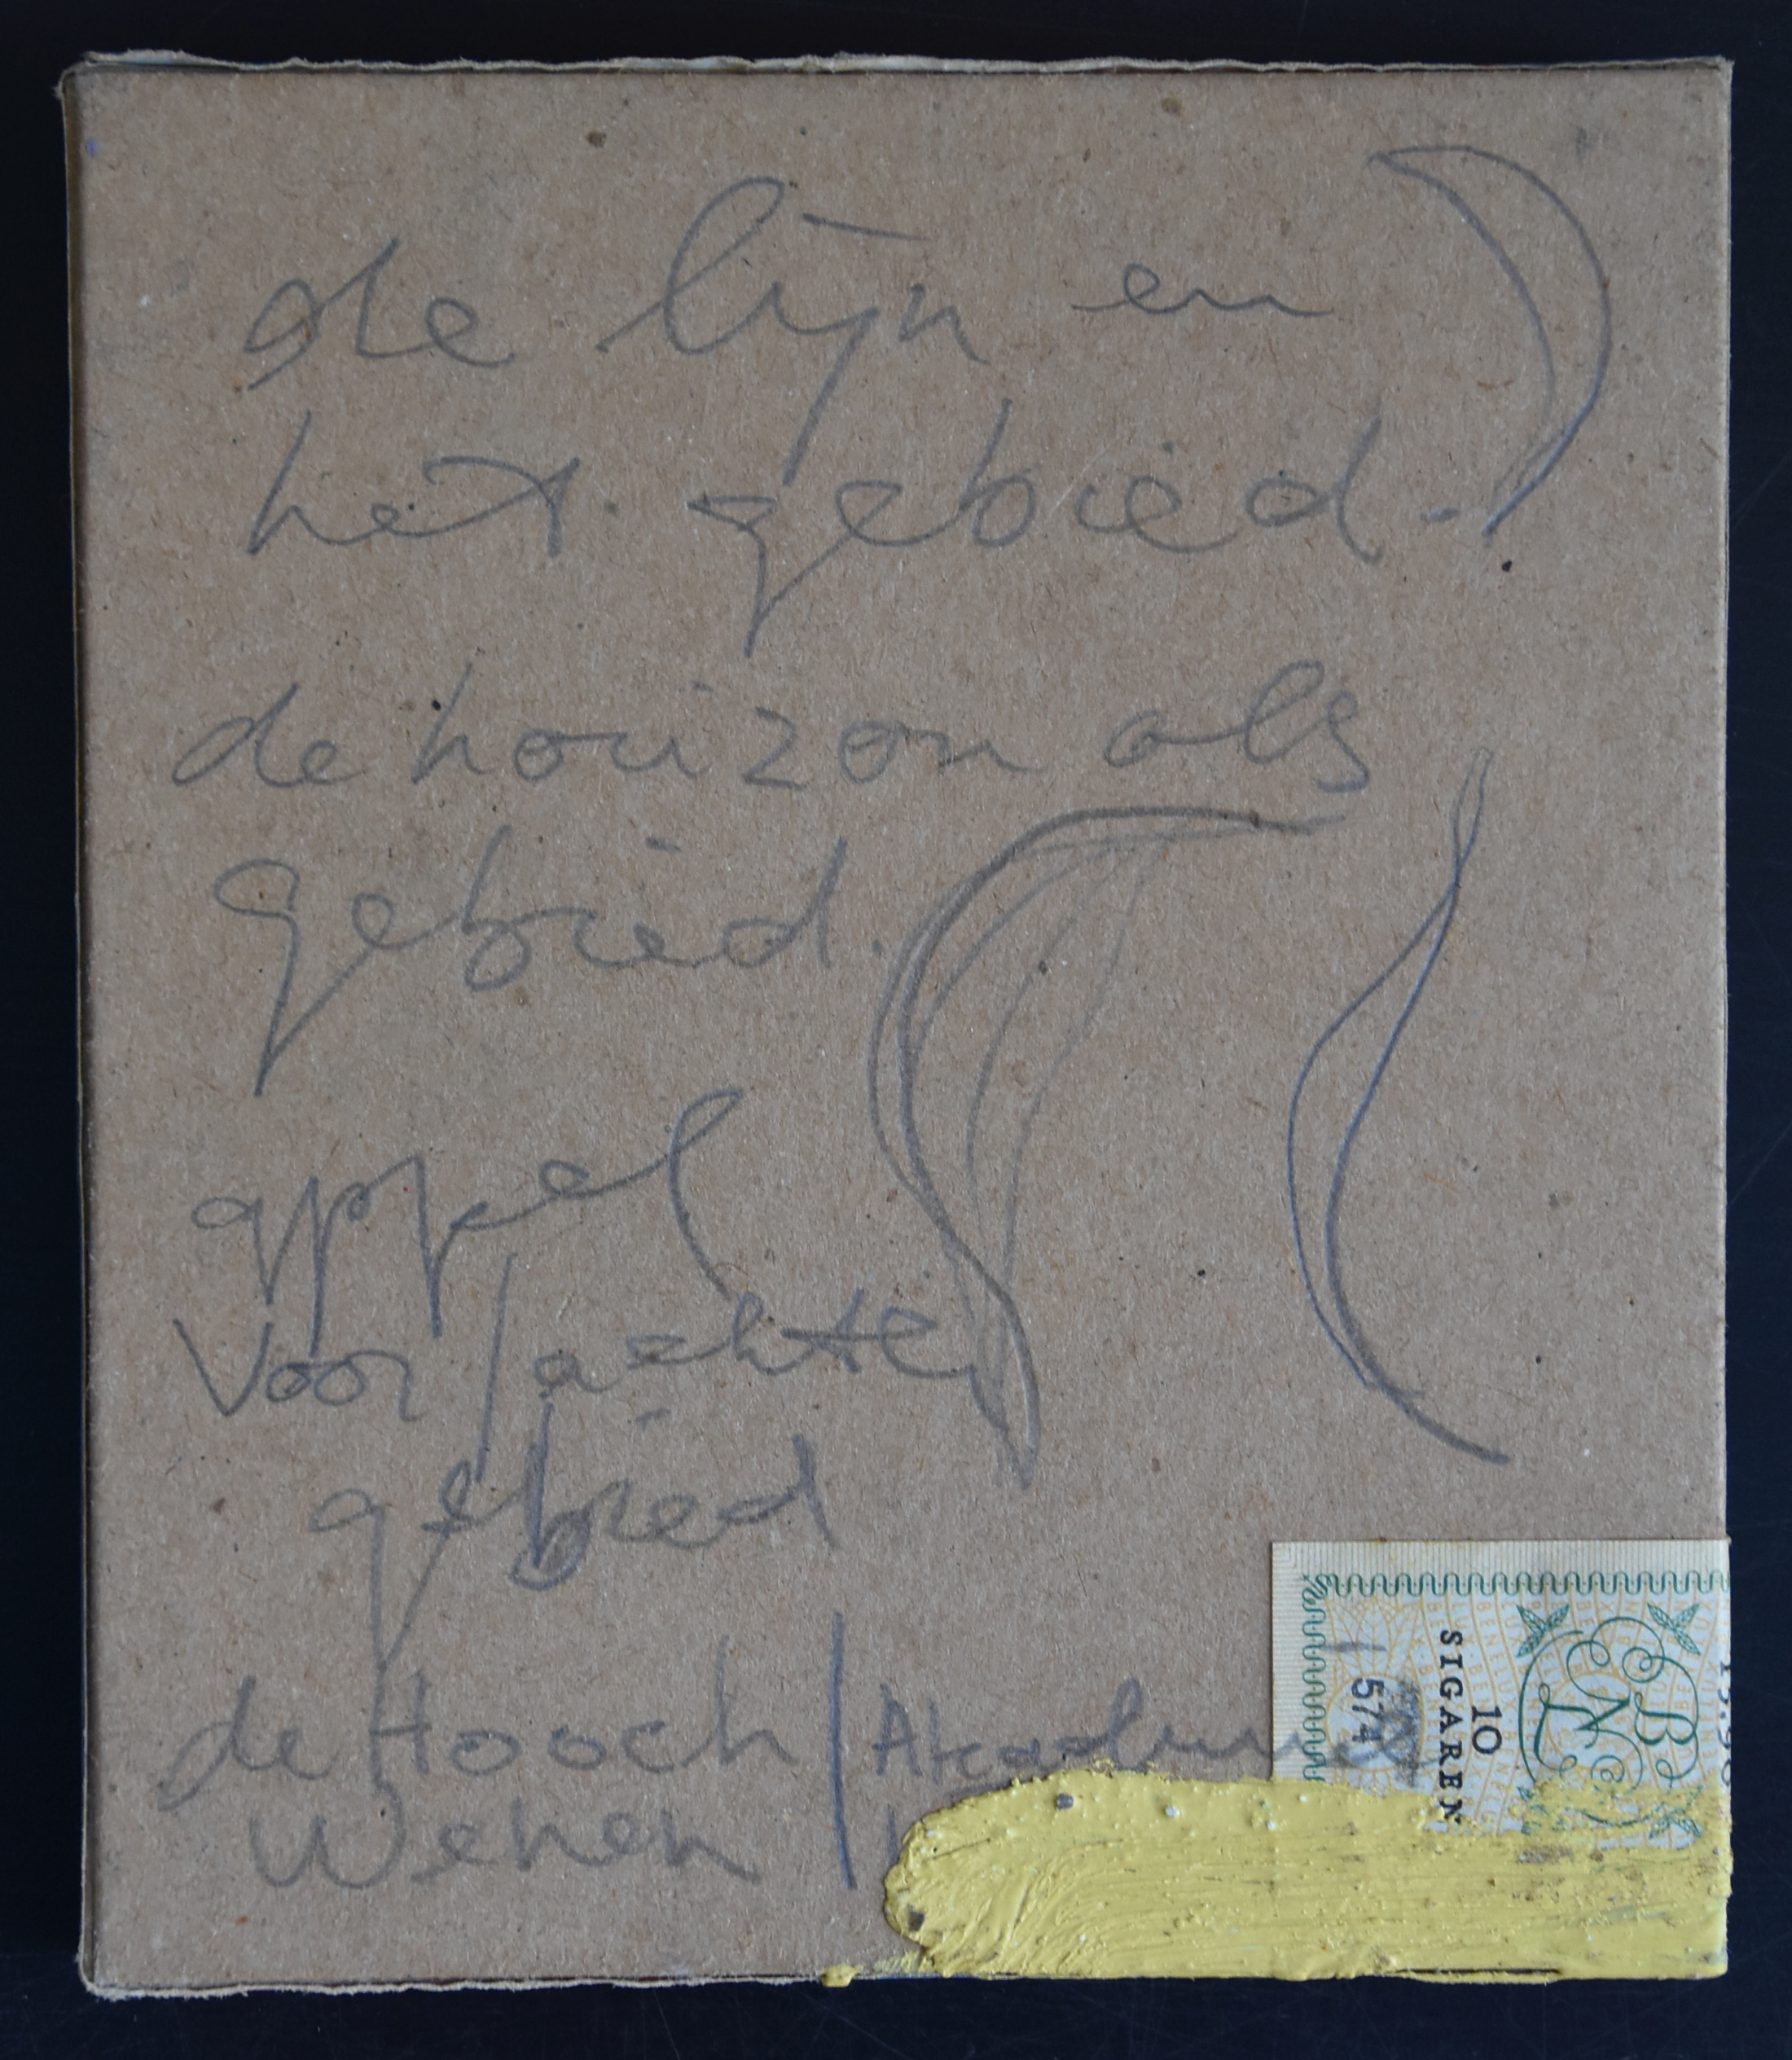 de lijn en
het gebied.
de horizon als
gebied.
appel
voor/achter
gebied
de Hooch/Akademie
Wenen
10
SIGAREN
574